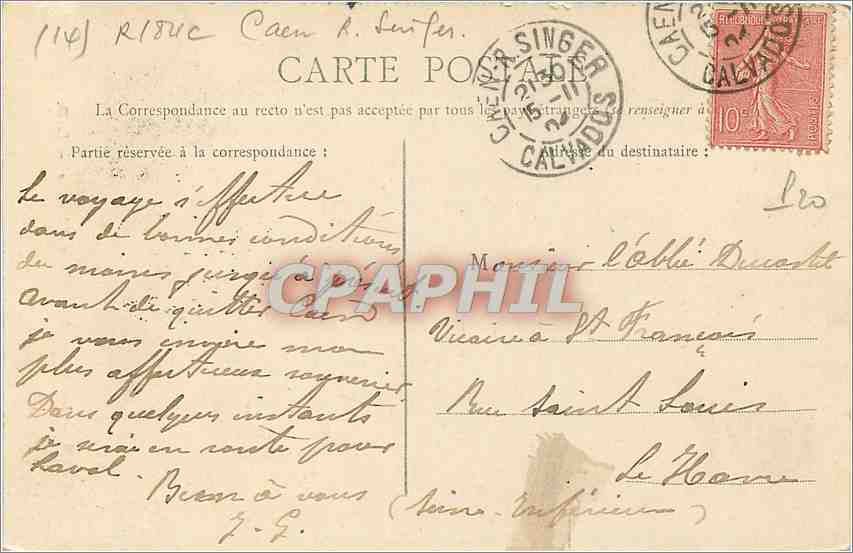 (14) R184C Caen R. Singer.
CARTE POSTALE
La Correspondance au recto n'est pas acceptée par tous les pays étrangers (se renseigner à
Partie réservée à la correspondance :
Adresse du destinataire :
CAEN - R. SINGER
2130
15 - 11
CALVADOS
CAEN
CALVADOS
REPUBLIQUE FRANÇAISE
10c
POSTES
120
Le voyage s'effectue
dans de bonnes conditions
du moins jusqu'à
avant de quitter Caen
je vous envoie mon
plus affectueux souvenir
Dans quelques instants
je serai en route pour
Laval.
Bien à vous
J. G.
Monsieur l'Abbé
Vicaire à St François
Rue Saint Louis
Le Havre
(Seine-Inférieure)
CPAPHIL